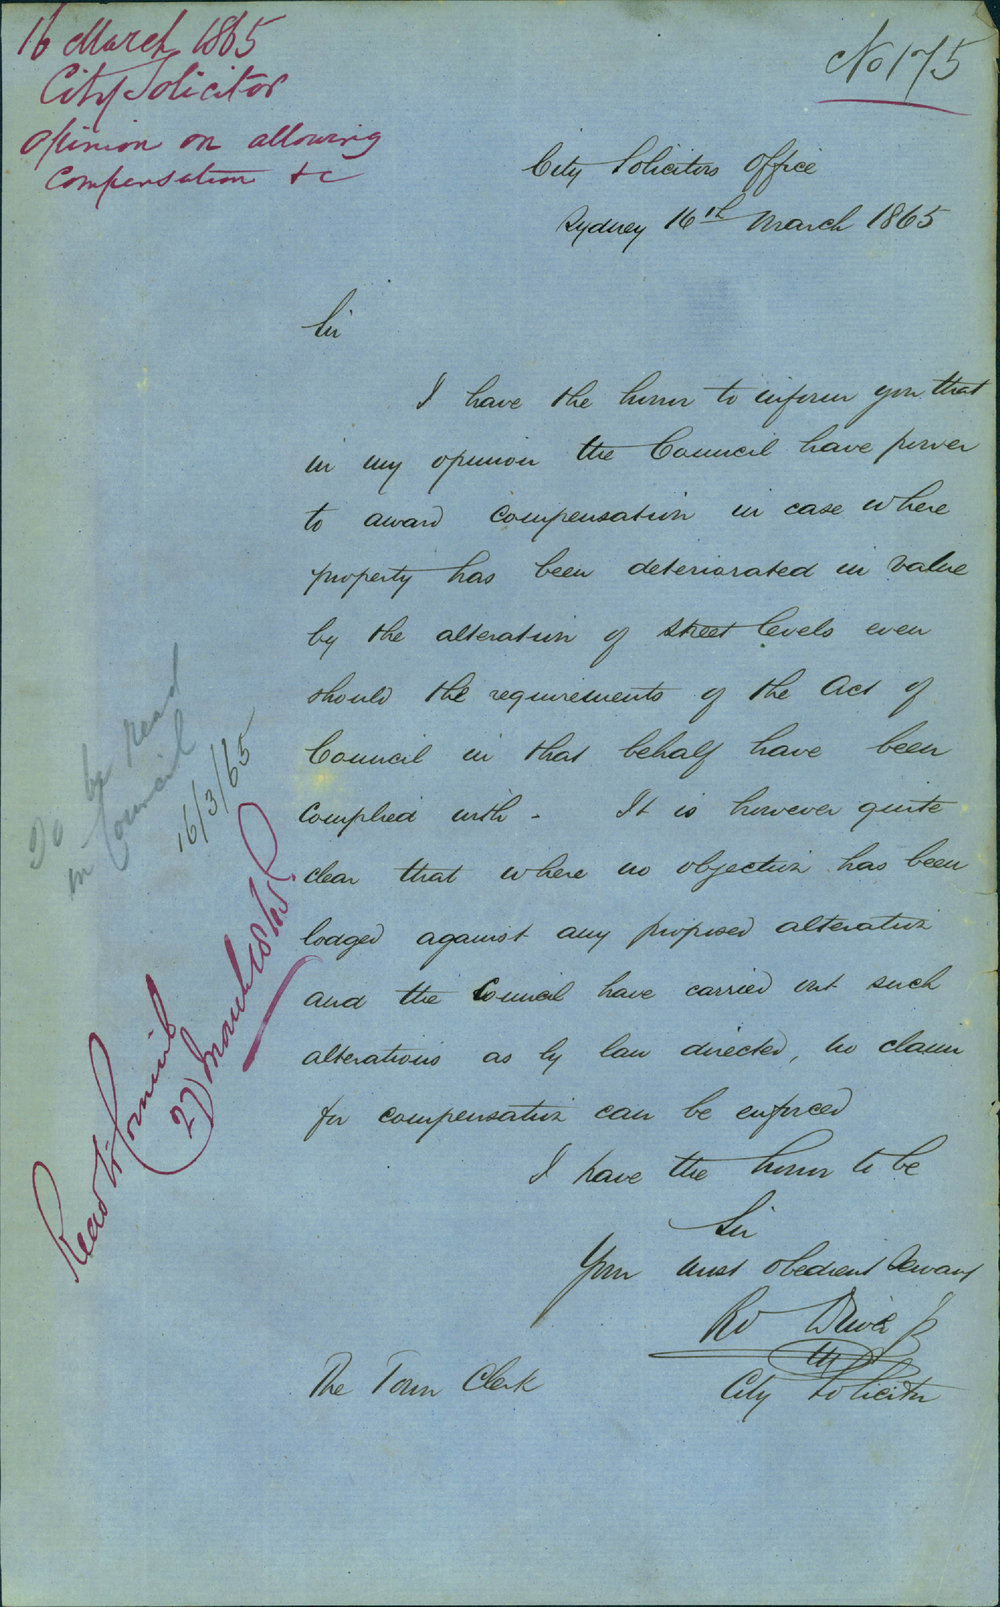 16 March 1865
City Solicitor
opinion on allowing
Compensation &c
No 175
City Solicitors Office
Sydney 16th March 1865
Sir
I have the honor to inform you that
in my opinion the Council have power
to award compensation in case where
property has been deteriorated in value
by the alteration of street levels even
should the requirements of the Act of
Council in that behalf have been
complied with - It is however quite
clear that where no objection has been
lodged against any proposed alteration
and the Council have carried out such
alterations as by law directed, no claim
for compensation can be enforced
I have the honor to be
Sir
Your most obedient Servant
Rd Driver Jr
City Solicitor
The Town Clerk
To be read
in Council
16/3/65
Read to Council
27 March 1865